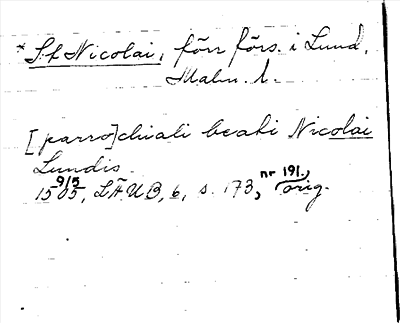 * S:t Nicolai, förr förs. i Lund,
Malm. l.
[parro]chiali beati Nicolai
Lundis.
15 9/5 05, LÄUB, 6, s. 173, nr 191., orig.